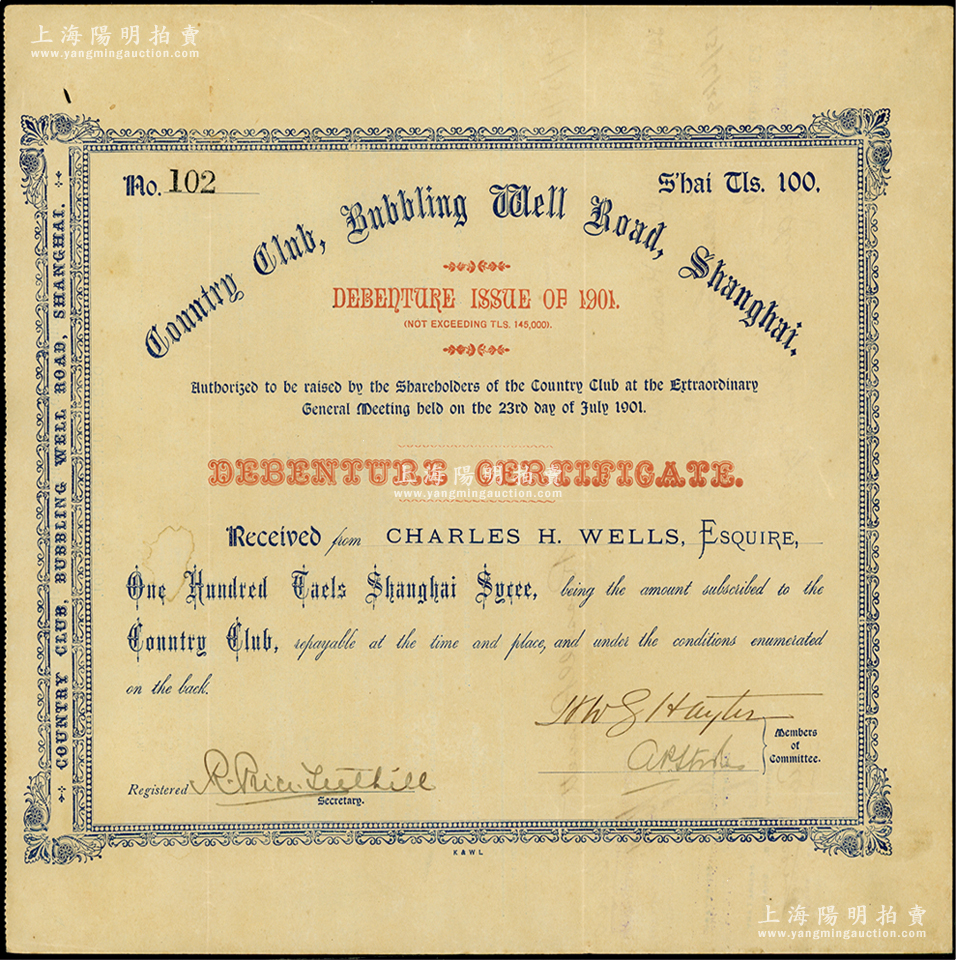 上海陽明拍賣
www.yangmingauction.com
No. 102
S'hai Tls. 100.
Country Club, Bubbling Well Road, Shanghai.
DEBENTURE ISSUE OF 1901.
(NOT EXCEEDING TLS. 145,000).
Authorized to be raised by the Shareholders of the Country Club at the Extraordinary
General Meeting held on the 23rd day of July 1901.
DEBENTURE CERTIFICATE.
上海陽明拍賣
www.yangmingauction.com
Received from CHARLES H. WELLS, ESQUIRE,
One Hundred Taels Shanghai Sycee, being the amount subscribed to the
Country Club, repayable at the time and place, and under the conditions enumerated
on the back.
Hayter
Members
of
Committee.
Registered R. Price
Secretary.
COUNTRY CLUB, BUBBLING WELL ROAD, SHANGHAI.
K & W L
上海陽明拍賣
www.yangmingauction.com